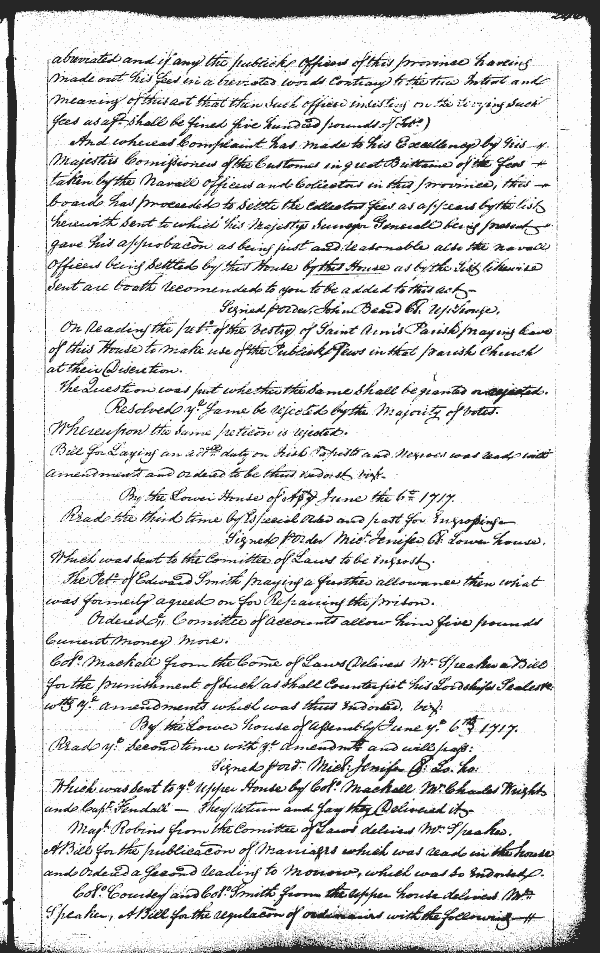 abreviated and if any the publick Officers of this province having
made out his fees in abreviated words Contrary to the true Intent and
meaning of this act that then such officer insisting on the levying such
fees as afd. shall be fined five hundred pounds of Tobo.)
And whereas Complaint has made to his Excellency by his
Majesties Comissioners of the Customes in great Brittaine of the fees
taken by the Navall officers and Collectors in this province, this
board has proceeded to settle the Collectors fees as appears by the list
herewith sent to which his Majestys Surveyr Generall being present
gave his approbacon as being just and reasonable also the navall
Officers being settled by this House by this House as by the List likewise
sent are boath recomended to you to be added to this act
Signed p order, John Beard Cl. up. house.
On reading the peto. of the Vestry of Saint Anns Parish praying leave
of this House to make use of the Publick Pews in that parish Church
at their Discretion.
The Question was put whether the same shall be granted or rejected.
Resolved ye. same be rejected by the Majority of votes.
Whereupon the same peticon is rejected.
Bill for Laying an addll. duty on Irish Papists and Negroes was read with
amendments and ordered to be thus endorst vizt.
By the Lower House of Assy June the 6th 1717.
Read the third time by Especial order and past for Engrossing
Signed p Order Micl. Jenifer Cl. Lower house.
Which was sent to the Comittee of Laws to be Engrost.
The Peto. of Edward Smith praying a further allowance then what
was formerly agreed on for Repairing the prison.
Ordered ye. Comittee of accounts allow him five pounds
Current money more.
Colo. Mackall from the Come of Laws Delivers Mr. Speaker a Bill
for the punishment of such as shall Counterfeit his Lordships Seales &c.
wth ye. amendments which was thus Endorsed. vizt.
By the Lower house of Assembly June ye. 6th 1717.
Read ye. second time with ye amendmts and will pass:
Signed p ord. Micl: Jenifer Cl: Lo. ho:
Which was sent to ye. upper House by Colo. Mackall Mr. Charles Wright
and Capt. Tendall — They return and say they Delivered it
Majr. Robins from the Comittee of Laws delivers Mr. Speaker.
A Bill for the publicacon of Marriages which was read in the house
and Ordered a second reading to Morrow, which was so Endorsed.
Colo. Coursey and Colo. Smith from the upper house delivers Mr.
Speaker, A Bill for the regulacon of ordinaries with the following